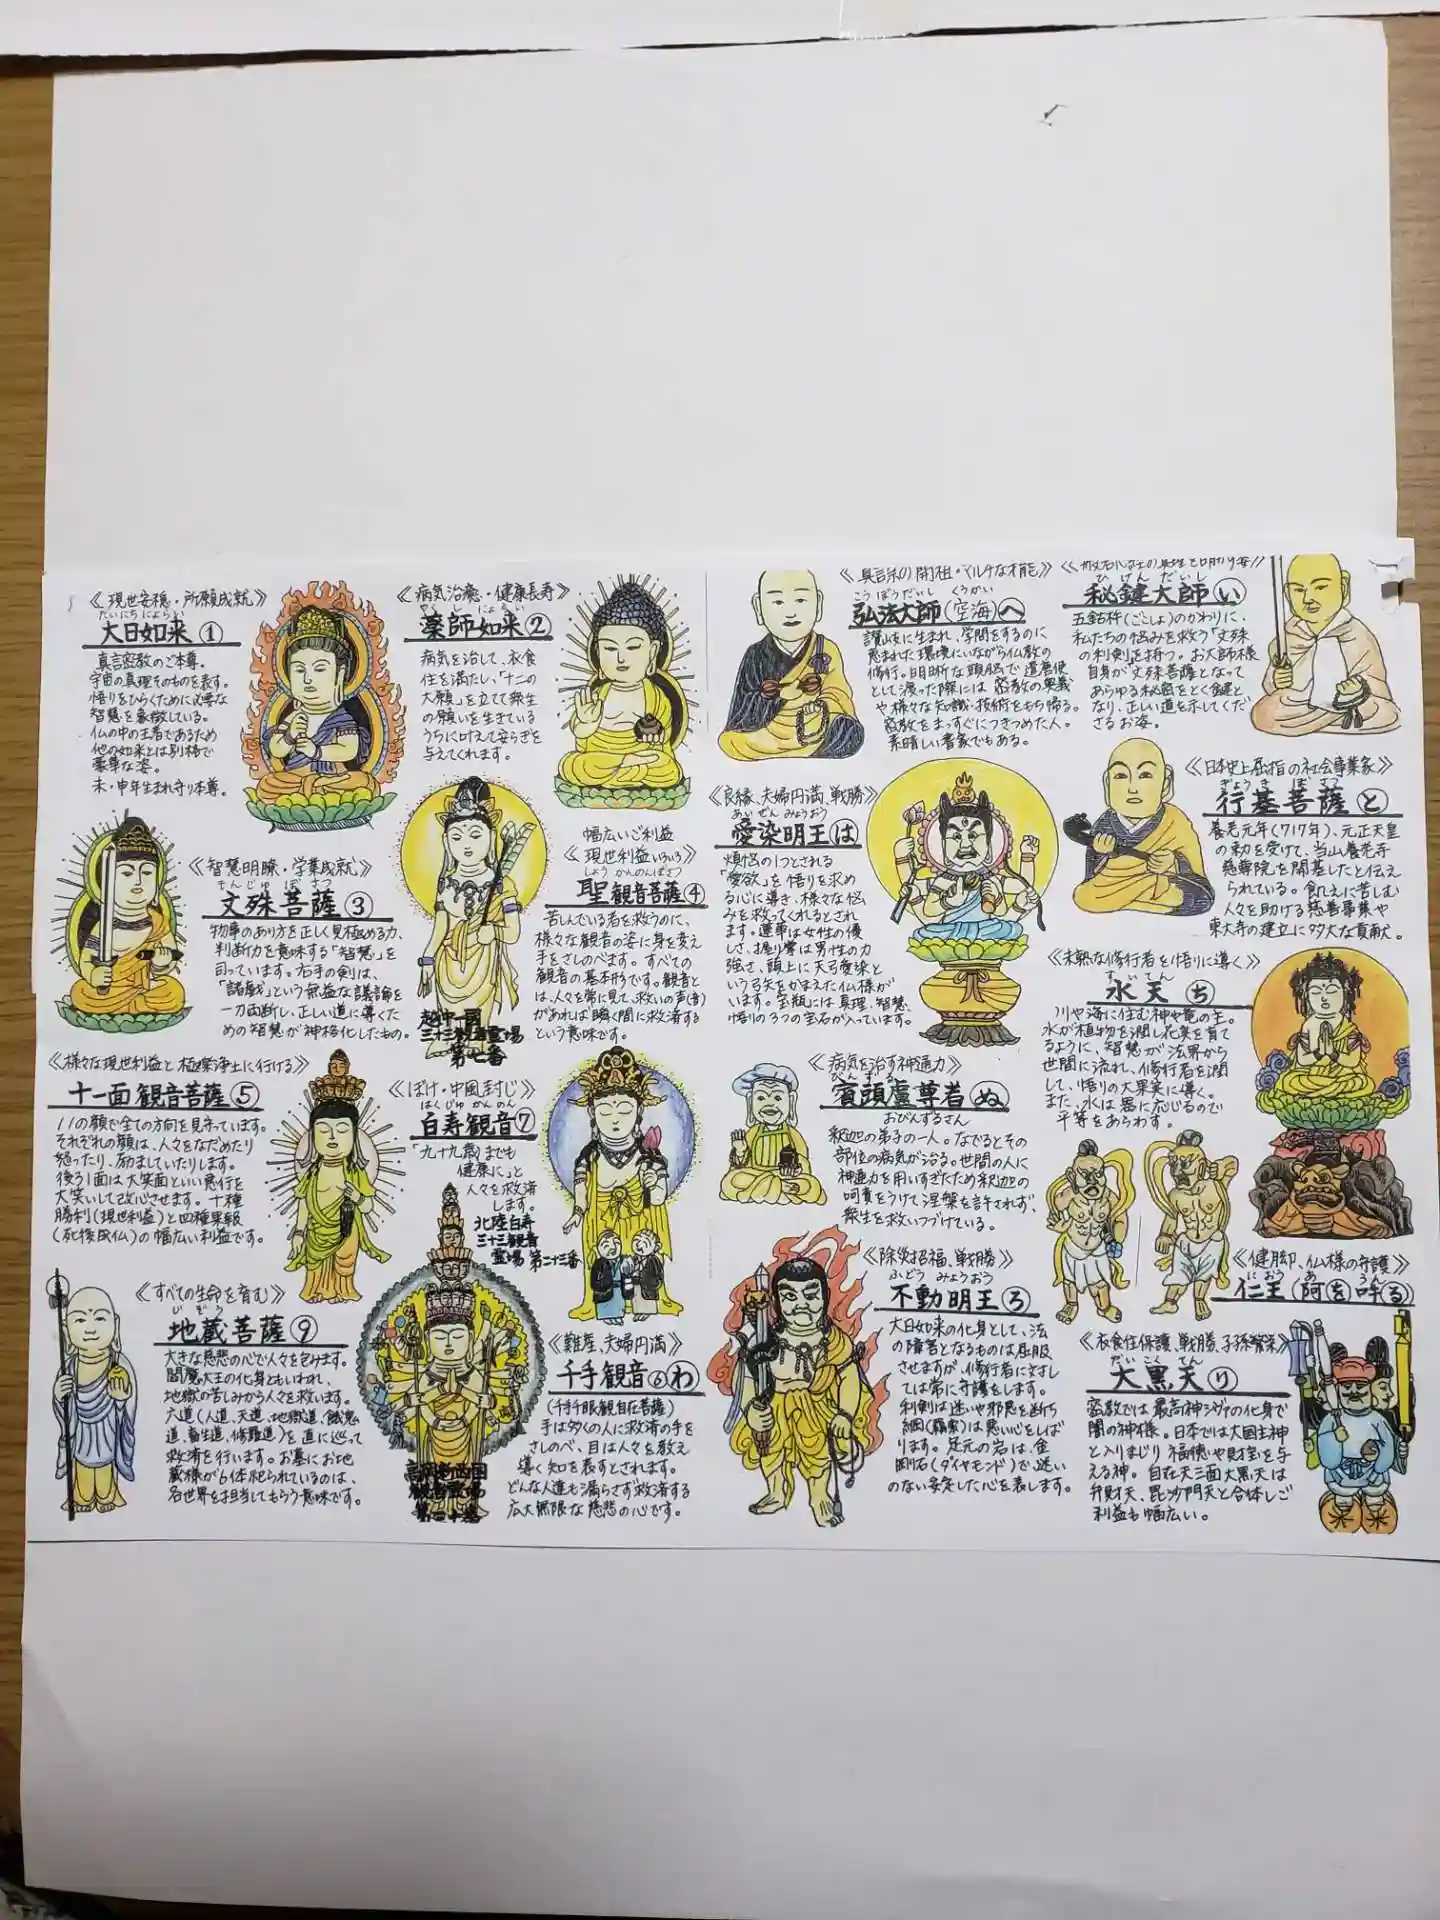 《現世安穏・所願成就》
だいにちにょらい
大日如来①
真言密教のご本尊。
宇宙の真理そのものを表す。
悟りをひらくために必要な
智慧を象徴している。
仏の中の王者であるため
他の如来とは別格で
豪華な姿。
未・申年生まれ守り本尊。
《病気治癒・健康長寿》
やくしにょらい
薬師如来②
病気を治して、衣食
住を満たし、「十二の
大願」を立て衆生
の願いを生きている
うちに叶えて安らぎを
与えてくれます。
《智慧明瞭・学業成就》
もんじゅぼさつ
文殊菩薩③
物事のあり方を正しく見極める力、
判断力を意味する「智慧」を
司っています。右手の剣は、
「諸戯」という無益な議論を
一刀両断し、正しい道に導くた
めの智慧が神格化したもの。
幅広いご利益
《現世利益いろいろ》
しょうかんのんぼさつ
聖観音菩薩④
苦しんでいる者を救うのに、
様々な観音の姿に身を変え
手をさしのべます。すべての
観音の基本形です。観音と
は、人々を常に見て、救いの声(音)
があれば瞬く間に救済する
という意味です。
越中一國
三十三観音霊場
第七番
《様々な現世利益と極楽浄土に行ける》
十一面観音菩薩⑤
11の顔で全ての方向を見守っています。
それぞれの顔は、人々をなだめたり
怒ったり、励ましていたりします。
後ろ1面は大笑面といい悪行を
大笑いして改心させます。十種
勝利(現世利益)と四種果報
(死後成仏)の幅広い利益です。
《ぼけ・中風封じ》
はくじゅかんのん
白寿観音⑦
「九十九歳までも
健康に」と
人々を救済
します。
北陸白寿
三十三観音
霊場 第二十三番
《すべての生命を育む》
じぞう
地蔵菩薩⑨
大きな慈悲の心で人々を包みます。
閻魔大王の化身ともいわれ、
地獄の苦しみから人々を救います。
六道(人道、天道、地獄道、餓鬼
道、畜生道、修羅道)を直に巡って
救済を行います。お墓にお地
蔵様が6体祀られているのは、
各世界を担当してもらう意味です。
《難産、夫婦円満》
千手観音⑥わ
(千手千眼観自在菩薩)
手は多くの人に救済の手を
さしのべ、目は人々を教え
導く知を表すとされます。
どんな人達も漏らさず救済する
広大無限な慈悲の心です。
西国
観音霊場
第二十番
《真言宗の開祖・マルチな才能》
こうぼうだいし くうかい
弘法大師(空海)へ
讃岐に生まれ、学問をするのに
恵まれた環境にいながら仏教の
修行。明晰な頭脳で遣唐使
として渡った際には密教の奥義
や様々な知識・技術をもち帰る。
密教をまっすぐにつきつめた人。
素晴しい書家でもある。
ひけんだいし
秘鍵大師い
五鈷杵(ごこしょ)のかわりに、
私たちの悩みを救う「文殊
の利剣」を持つ。お大師様
自身が文殊菩薩となって
あらゆる秘密をとく鍵と
なり、正しい道を示してくだ
さるお姿。
《良縁、夫婦円満、戦勝》
あいぜんみょうおう
愛染明王は
煩悩の1つとされる
「愛欲」を悟りを求め
る心に導き、様々な悩
みを救ってくれるとされ
ます。蓮華は女性の優
しさ、握り拳は男性の力
強さ、頭上に天弓愛染と
いう弓矢をかまえた仏様が
います。宝瓶には真理、智慧、
悟りの3つの宝石が入っています。
《日本史上屈指の社会事業家》
ぎょうきぼさつ
行基菩薩と
養老元年(717年)、元正天皇
の勅を受けて、当山養老寺
慈尊院を開基したと伝え
られている。飢えに苦しむ
人々を助ける慈善事業や
東大寺の建立に多大な貢献。
《未熟な修行者を悟りに導く》
すいてん
水天ち
川や海に住む神や竜の王。
水が植物を潤し花実を育て
るように、智慧が法界から
世間に流れ、修行者を潤
して、悟りの大果実に導く。
また、水は器に応じるので
平等をあらわす。
《病気を治す神通力》
びんずる
賓頭盧尊者ぬ
おびんずるさん
釈迦の弟子の一人。なでるとその
部位の病気が治る。世間の人に
神通力を用いすぎたため釈迦の
呵責をうけて涅槃を許されず、
衆生を救いつづけている。
《除災招福、戦勝》
ふどうみょうおう
不動明王ろ
大日如来の化身として、法
の障害となるものは屈服
させますが、修行者に対し
ては常に守護をします。
利剣は迷いや邪悪を断ち
綱(羂索)は悪い心をしば
ります。足元の岩は、金
剛石(ダイヤモンド)で、迷い
のない安定した心を表します。
《健脚、仏様の守護》
におう あ うん
仁王(阿を吽る)
《衣食住保護、戦勝、子孫繁栄》
だいこくてん
大黒天り
密教では最高神シヴァの化身で
闇の神様。日本では大国主神
と入りまじり福徳や財宝を与
える神。自在天三面大黒天は
弁財天、毘沙門天と合体しご
利益も幅広い。